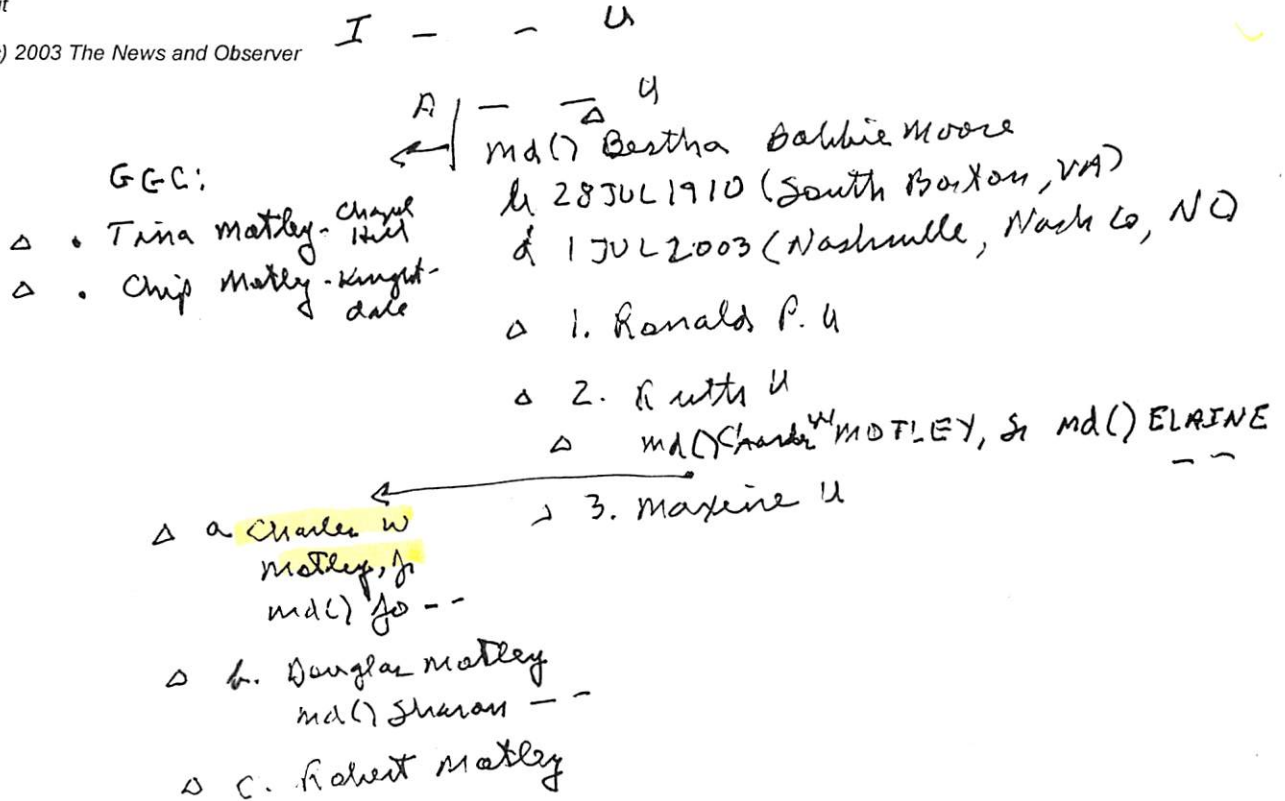 ) 2003 The News and Observer
I - - U
A - - U
md() Bertha Dabbie Moore
b 28 JUL 1910 (South Boston, VA)
d 1 JUL 2003 (Nashville, Nash Co, NC)
GGC:
Δ • Tina Motley - Chapel Hill
Δ • Chip Motley - Knight-
dale
Δ 1. Ronald P. U
Δ 2. Ruth U
Δ md() Charles W MOTLEY, Sr md() ELAINE - -
3. Maxine U
Δ a Charles W
Motley, Jr
md() Jo - -
Δ b. Douglas Motley
md() Sharon - -
Δ c. Robert Motley